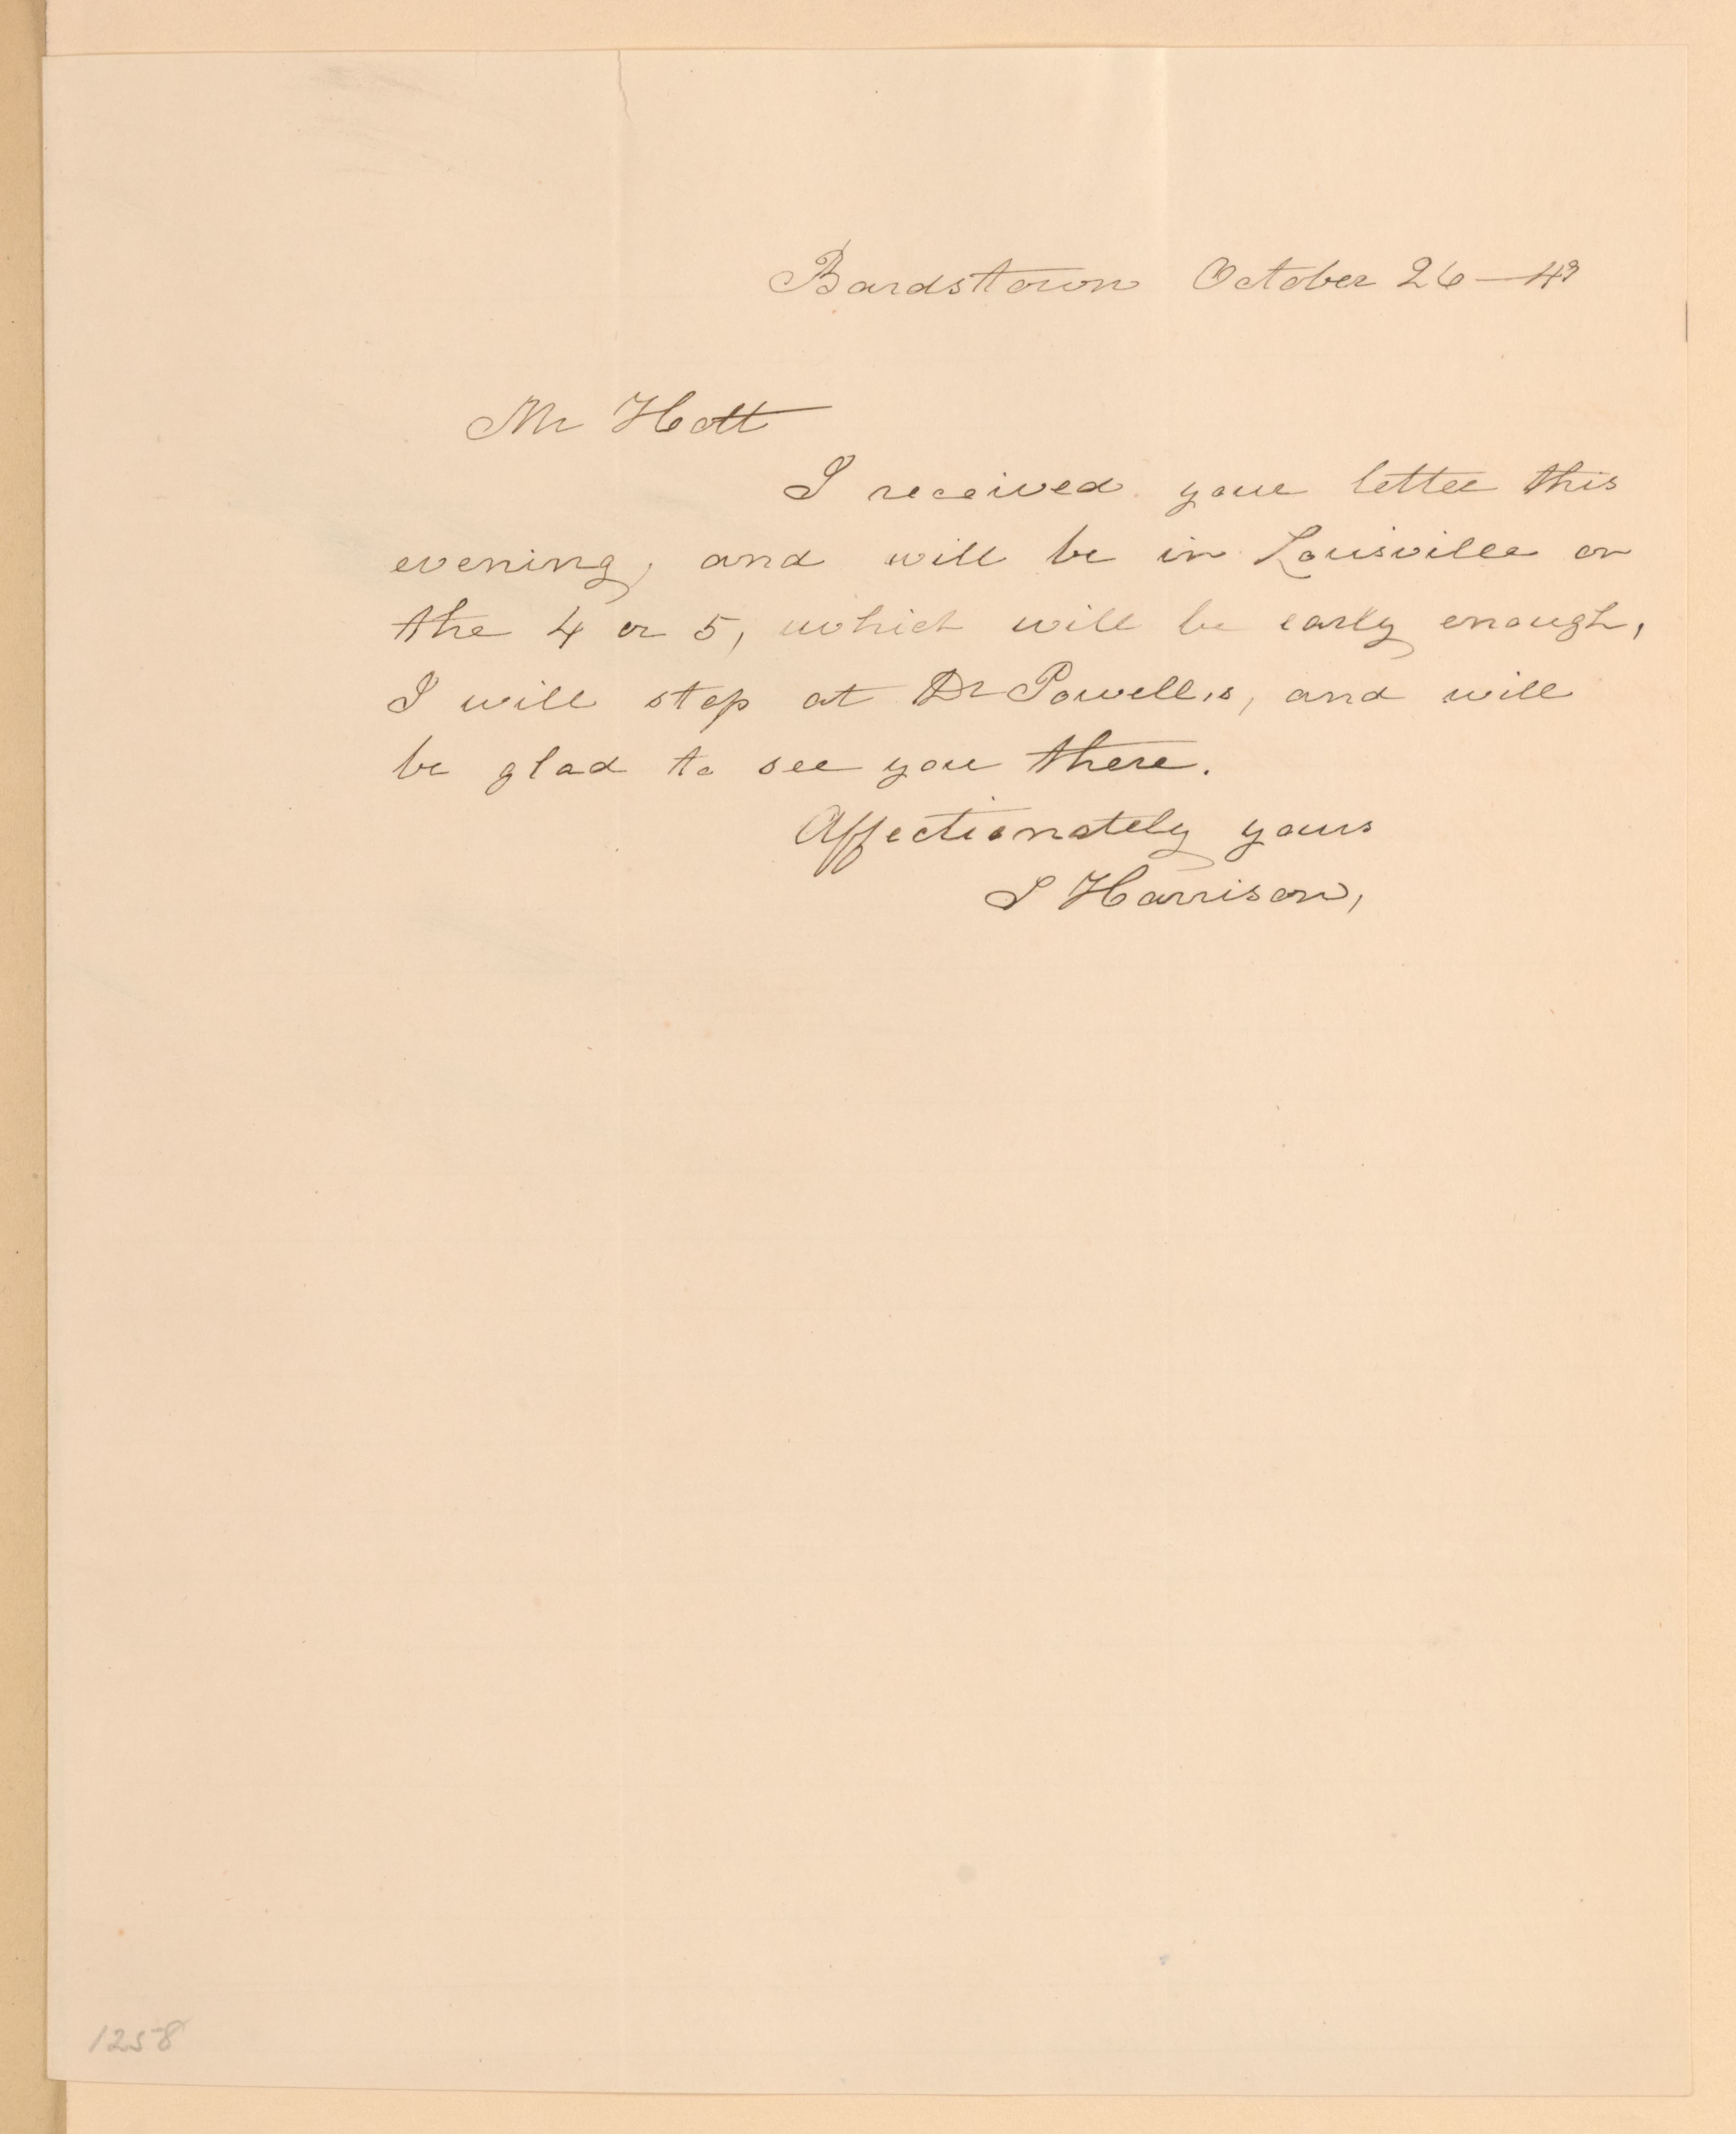 Bardstown October 26 — 49
Mr Holt
I received your letter this
evening, and will be in Louisville on
the 4 or 5, which will be early enough,
I will stop at Dr Powell,s, and will
be glad to see you there.
Affectionately yours
S Harrison,
1258